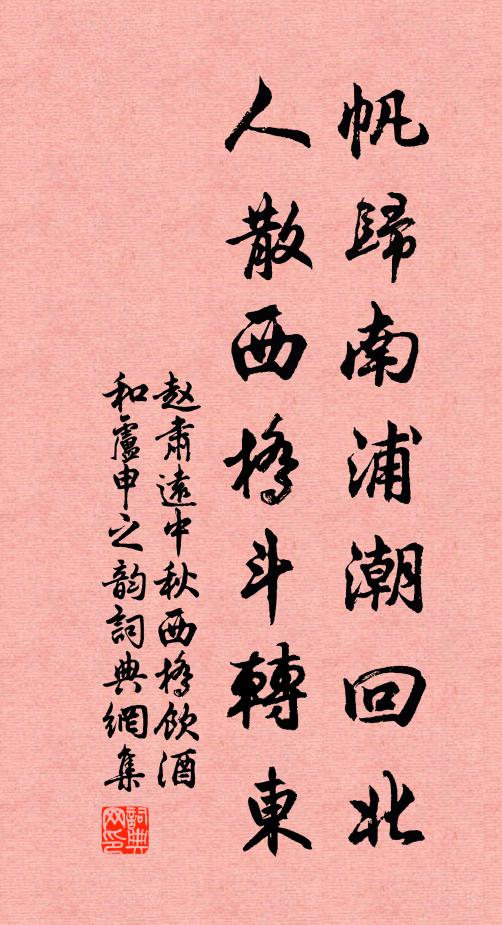 帆歸南浦潮回北
人散西橋斗轉東
赵肅遠中秋西橋飲酒
和盧申之韵詞典網集
詞典网印